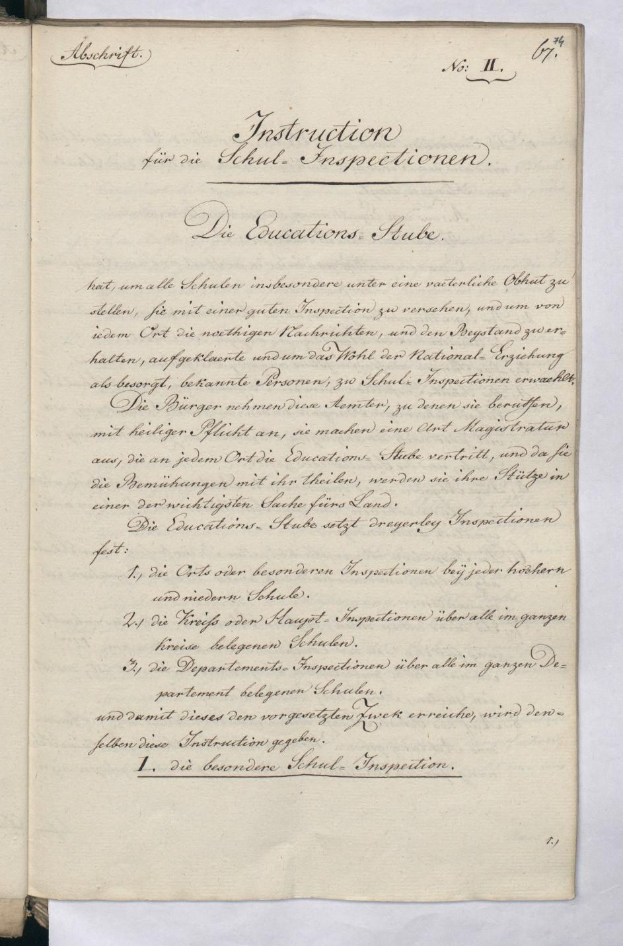 Abschrift.
No: II.
67.
Instruction
für die Schul-Inspectionen.
Die Educations-Stube.
hat, um alle Schulen insbesondere unter eine vaeterliche Obhut zu
stellen, sie mit einer guten Inspection zu versehen, und um von
jedem Ort die noethigen Nachrichten, und den Beystand zu er-
halten, aufgeklaerte und um das Wohl der National-Erziehung
als besorgt, bekannte Personen, zu Schul-Inspectionen erwaehlt.
Die Bürger nehmen diese Aemter, zu denen sie beruffen,
mit heiliger Pflicht an, sie machen eine Art Magistratur
aus, die an jedem Ort die Educations-Stube vertritt, und da sie
die Bemühungen mit ihr theilen, werden sie ihre Stütze in
einer der wichtigsten Sache fürs Land.
Die Educations-Stube setzt dreyerley Inspectionen
fest:
1., die Orts oder besonderen Inspectionen beÿ jeder hoehern
und niedern Schule.
2., die Kreiss oder Haupt-Inspectionen über alle im ganzen
Kreise belegenen Schulen.
3., die Departements-Inspectionen über alle im ganzen De-
partement belegenen Schulen.
und damit dieses den vorgesetzten Zwek erreiche, wird den-
selben diese Instruction gegeben.
I. die besondere Schul-Inspection.
1.,